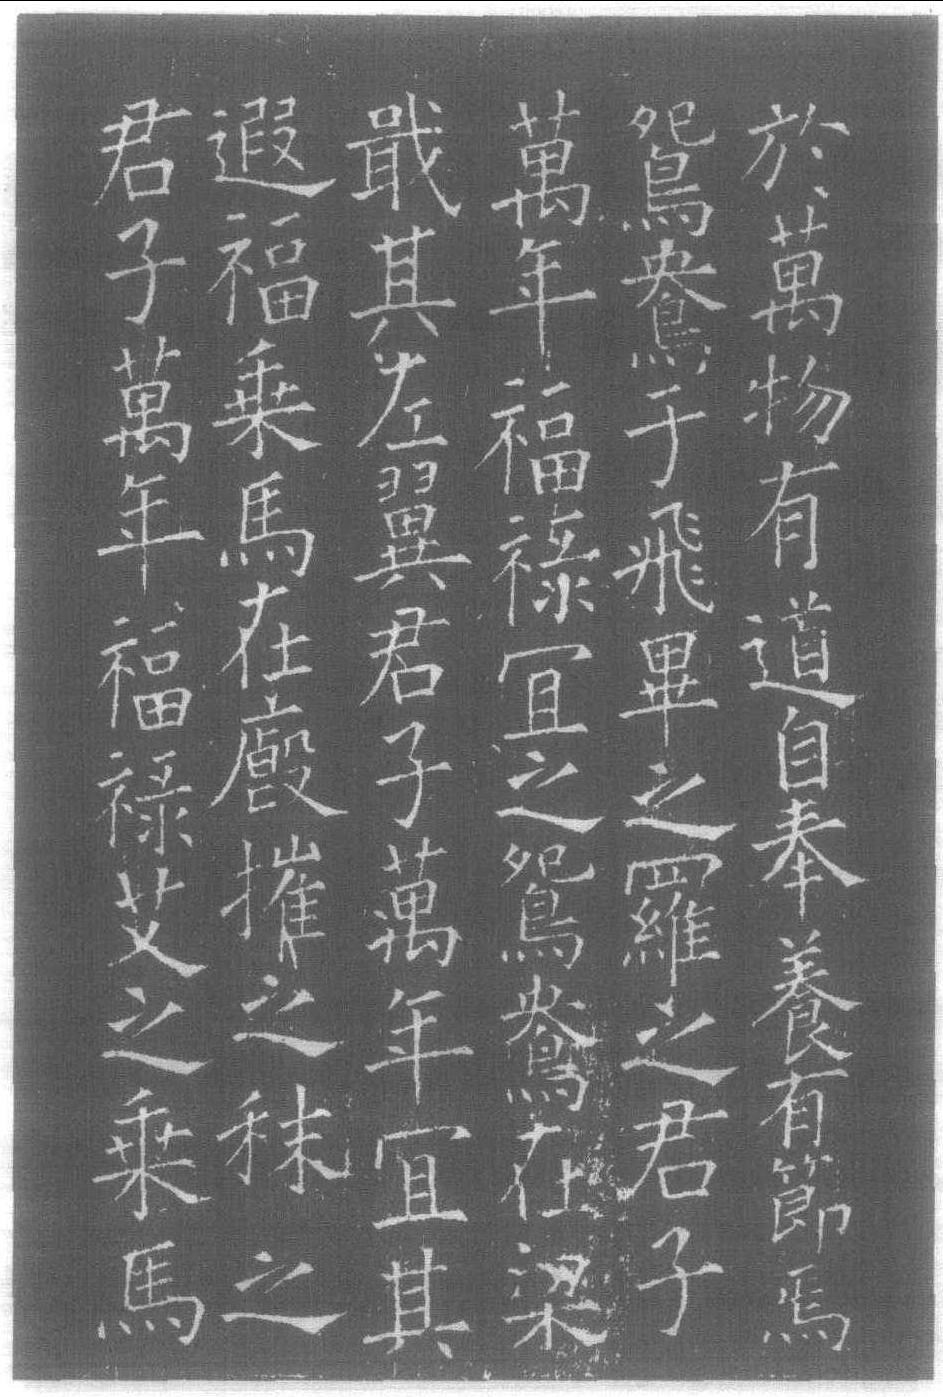 於萬物有道自奉養有節焉
鴛鴦于飛畢之羅之君子
萬年福祿宜之鴛鴦在梁
戢其左翼君子萬年宜其
遐福乗馬在廄摧之秣之
君子萬年福祿艾之乗馬